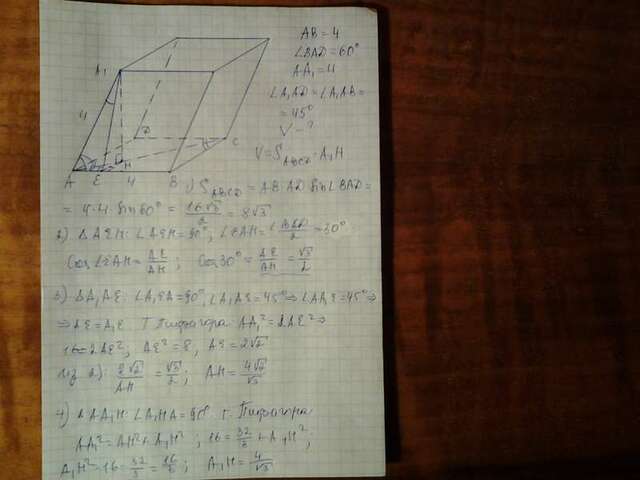 AB=4
∠BAD=60°
AA₁=4
∠A₁AD=∠A₁AB=
=45°
V-?
V=S_ABCD·A₁H
A₁
4
D
C
H
A E 4 B
1) S_ABCD = AB·AD sin∠BAD=
= 4·4 sin60° = 16√3/2 = 8√3
2) △AEH: ∠AEH=90°, ∠EAH=∠BAD/2=30°
cos∠EAH=AE/AH; cos30°=AE/AH=√3/2
3) △A₁AE: ∠A₁EA=90°, ∠A₁AE=45°⇒∠AA₁E=45°⇒
⇒AE=A₁E Т Пифагора AA₁²=2AE²⇒
16=2AE²; AE²=8, AE=2√2
из 2): 2√2/AH=√3/2; AH=4√2/√3
4) △AA₁H: ∠A₁HA=90° т. Пифагора
AA₁²=AH²+A₁H²; 16=32/3+A₁H²;
A₁H²=16-32/3=16/3; A₁H=4/√3